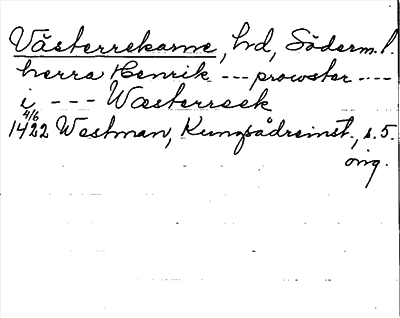 Västerrekarne, hd, Söderm.l.
herra Henrik --- prowster ----
i --- Wæsterreek
4/6
1422 Westman, Kungsådreinst., s. 5.
orig.